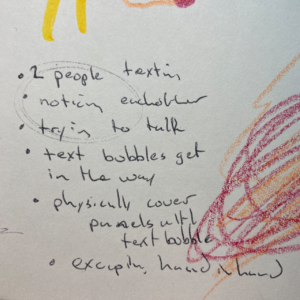 • 2 people textin
• noticin eachother
• tryin to talk
• text bubbles get
in the way
• physically cover
panels with
text bubble
• escapin, hand in hand